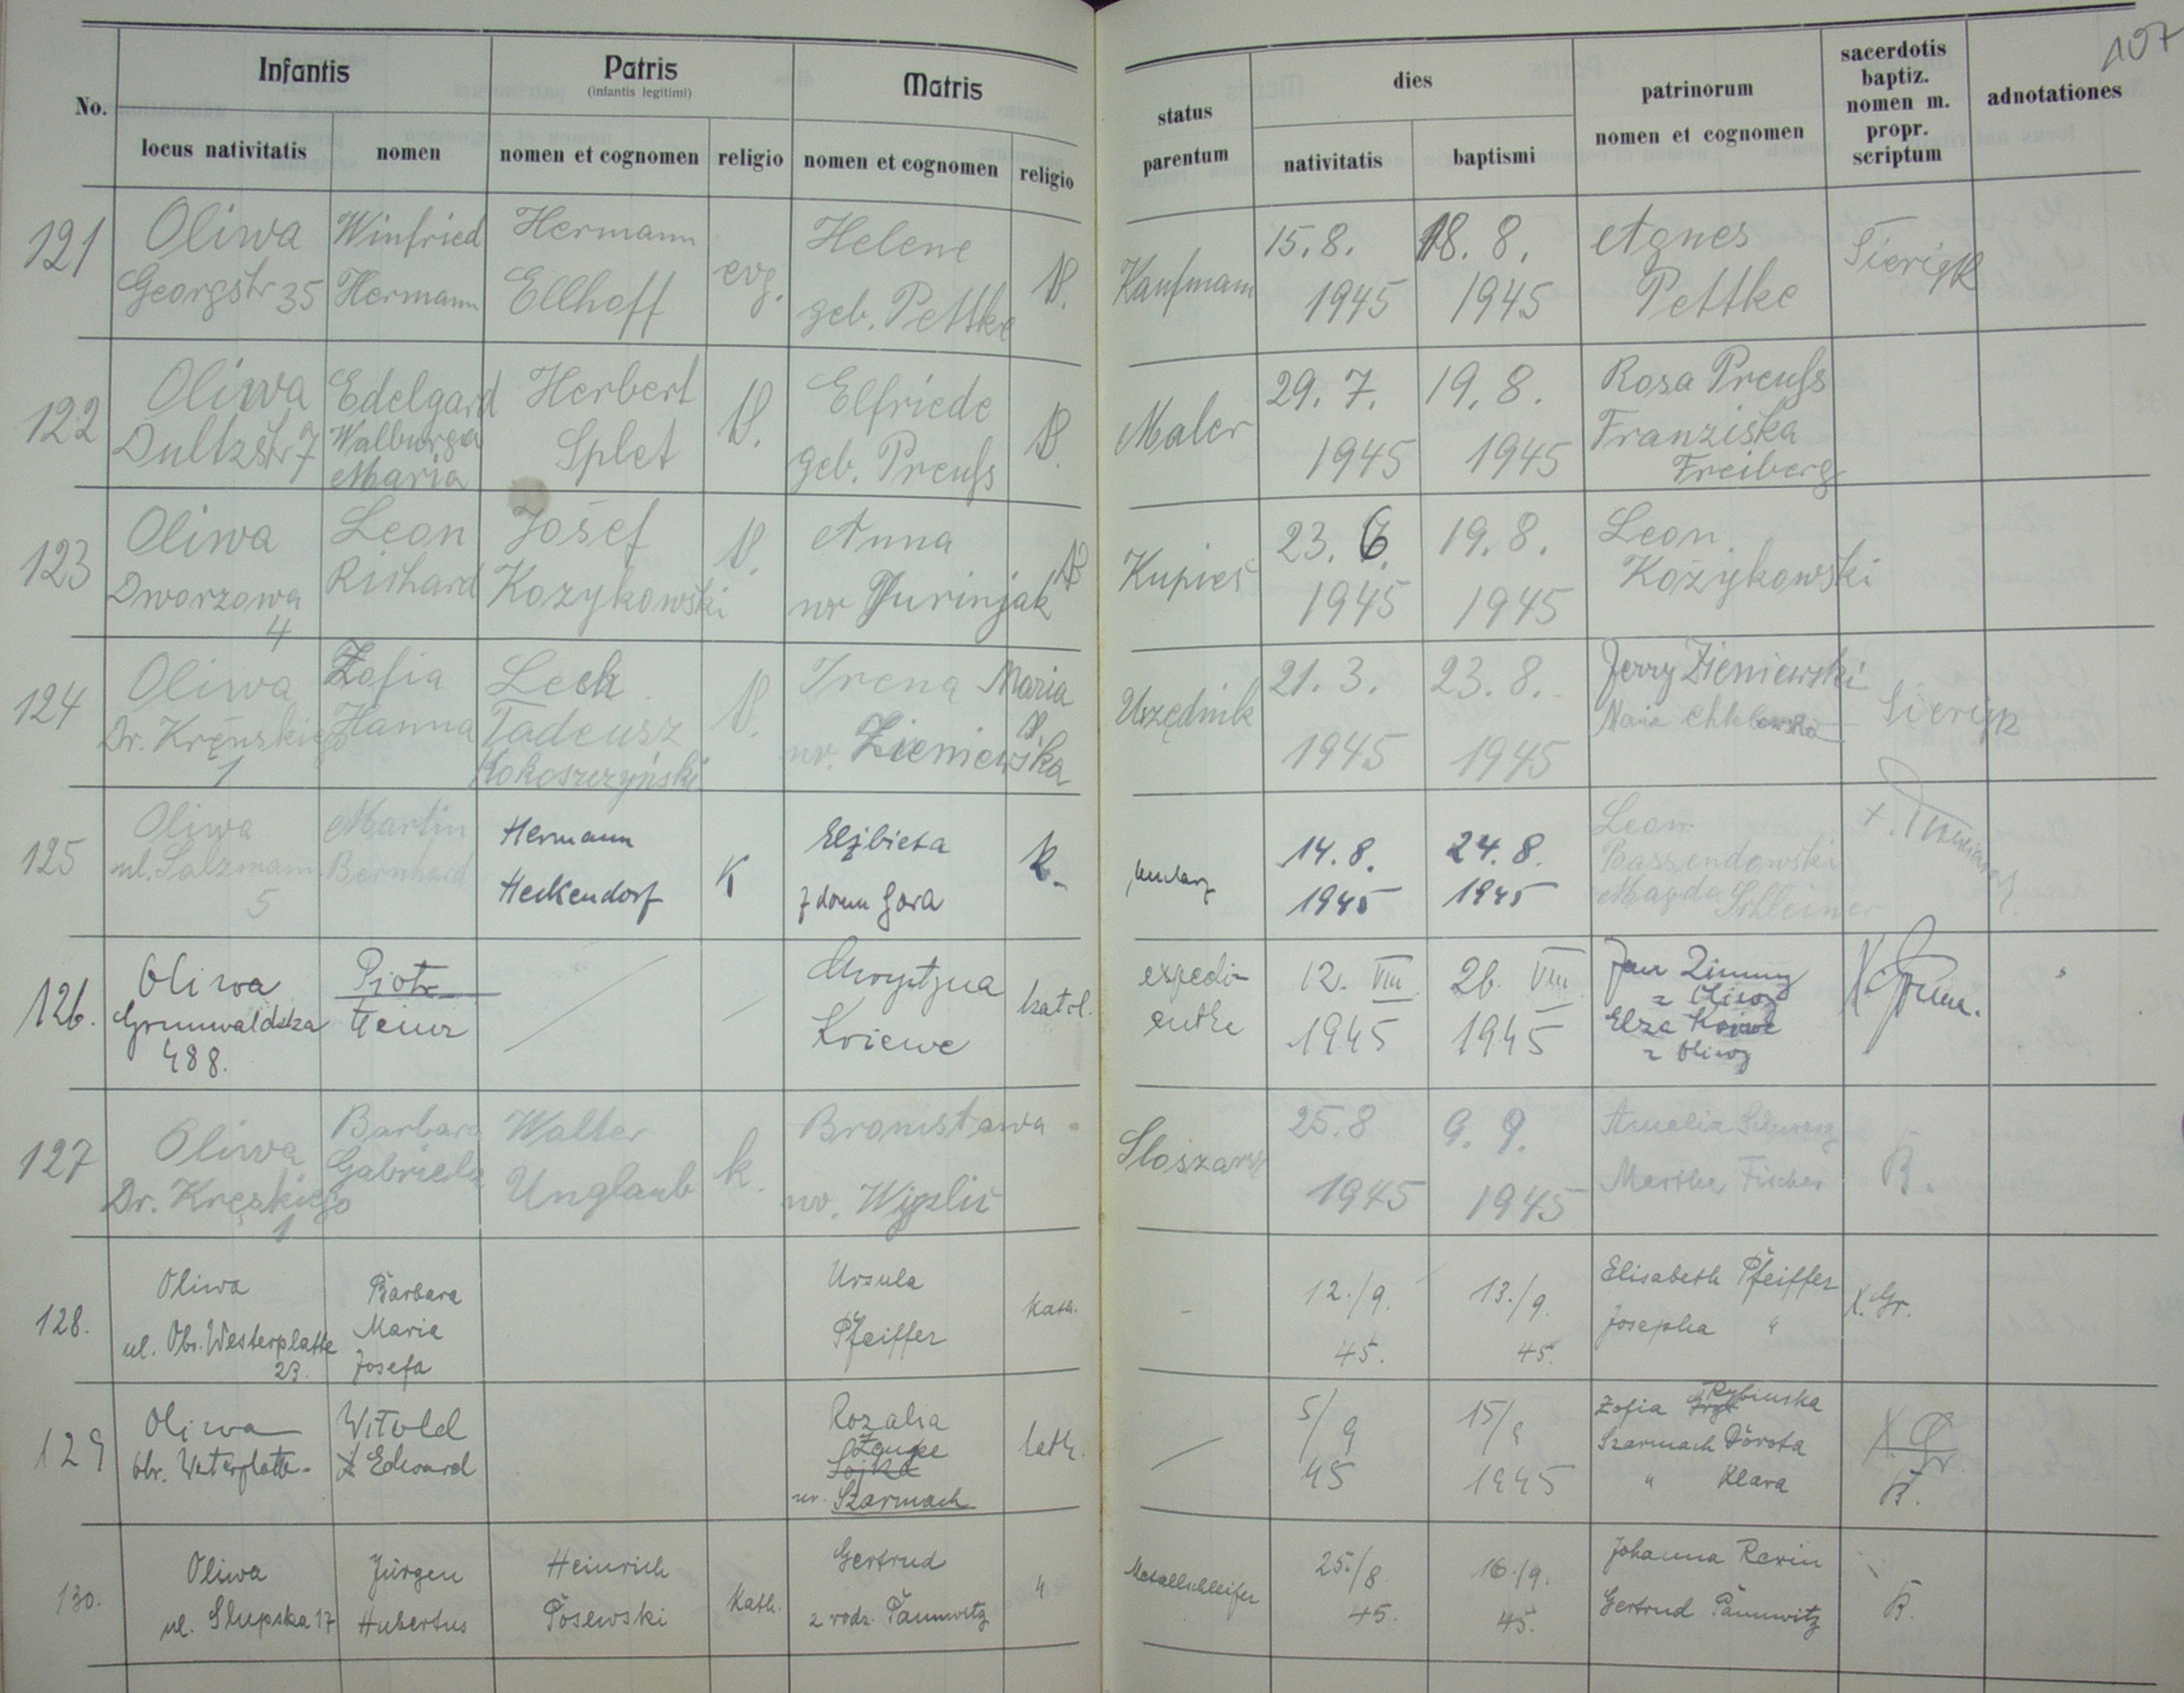 107
No.
Infantis
locus nativitatis
nomen
Patris
(infantis legitimi)
nomen et cognomen
religio
Matris
nomen et cognomen
religio
status
parentum
dies
nativitatis
baptismi
patrinorum
nomen et cognomen
sacerdotis
baptiz.
nomen m.
propr.
scriptum
adnotationes
121
Oliwa
Georgstr 35
Winfried
Hermann
Hermann
Ellhoff
evg.
Helene
geb. Pettke
Kaufmann
15. 8.
1945
18. 8.
1945
Agnes
Pettke
122
Oliwa
Dultzstr 7
Edelgard
Walburga
Maria
Herbert
Splet
Elfriede
geb. Preuſs
Maler
29. 7.
1945
19. 8.
1945
Rosa Preuſs
Franziska
Freiberg
123
Oliwa
Dworzowa
4
Leon
Richard
Josef
Kozykowski
Anna
Kupieć
23. 6.
1945
19. 8.
1945
Leon
Kożykowski
124
Oliwa
1
Zofia
Hanna
Lech
Tadeusz
Kokoszczyński
Irena Maria
ur. Zieniewska
Urzędnik
21. 3.
1945
23. 8.
1945
Jerzy Zieniewski
125
Oliwa
ul. Salzmann
5
Martin
Bernhard
Hermann
Heckendorf
K
Elżbieta
z domu Gora
k.
14. 8.
1945
24. 8.
1945
Leon
Magda Schleiner
126.
Oliwa
Grunwaldska
488.
Piotr
Heinz
Kriewe
katol.
expedi-
entka
12. VIII
1945
26. VIII
1945
Elza
z Oliwy
127
Oliwa
Dr. Kręskiego
1
Barbara
Gabriela
Walter
Unglaub
k.
Bronisława
Sloszarz
25. 8
1945
9. 9.
1945
Amalia
Martha Fischer
B.
128.
Oliwa
ul. Obr. Westerplatte
23.
Barbara
Maria
Josefa
Ursula
Pfeiffer
kath.
-
12./9.
45.
13./9.
45.
Elisabeth Pfeiffer
Josepha "
X. Gr.
129
Oliwa
Obr. Westerplatte
Witold
Edward
Rozalia
ur. Szarmach
kath.
5/9
45
15/9
1945
Zofia Rybinska
Szarmach Dorota
" Klara
B.
130.
Oliwa
ul. Slupska 17
Jürgen
Hubertus
Heinrich
Posewski
kath.
Gertrud
z rodz. Pannwitz
"
Metallschleifer
25./8
45.
16./9.
45.
Johanna Rexin
Gertrud Pannwitz
B.